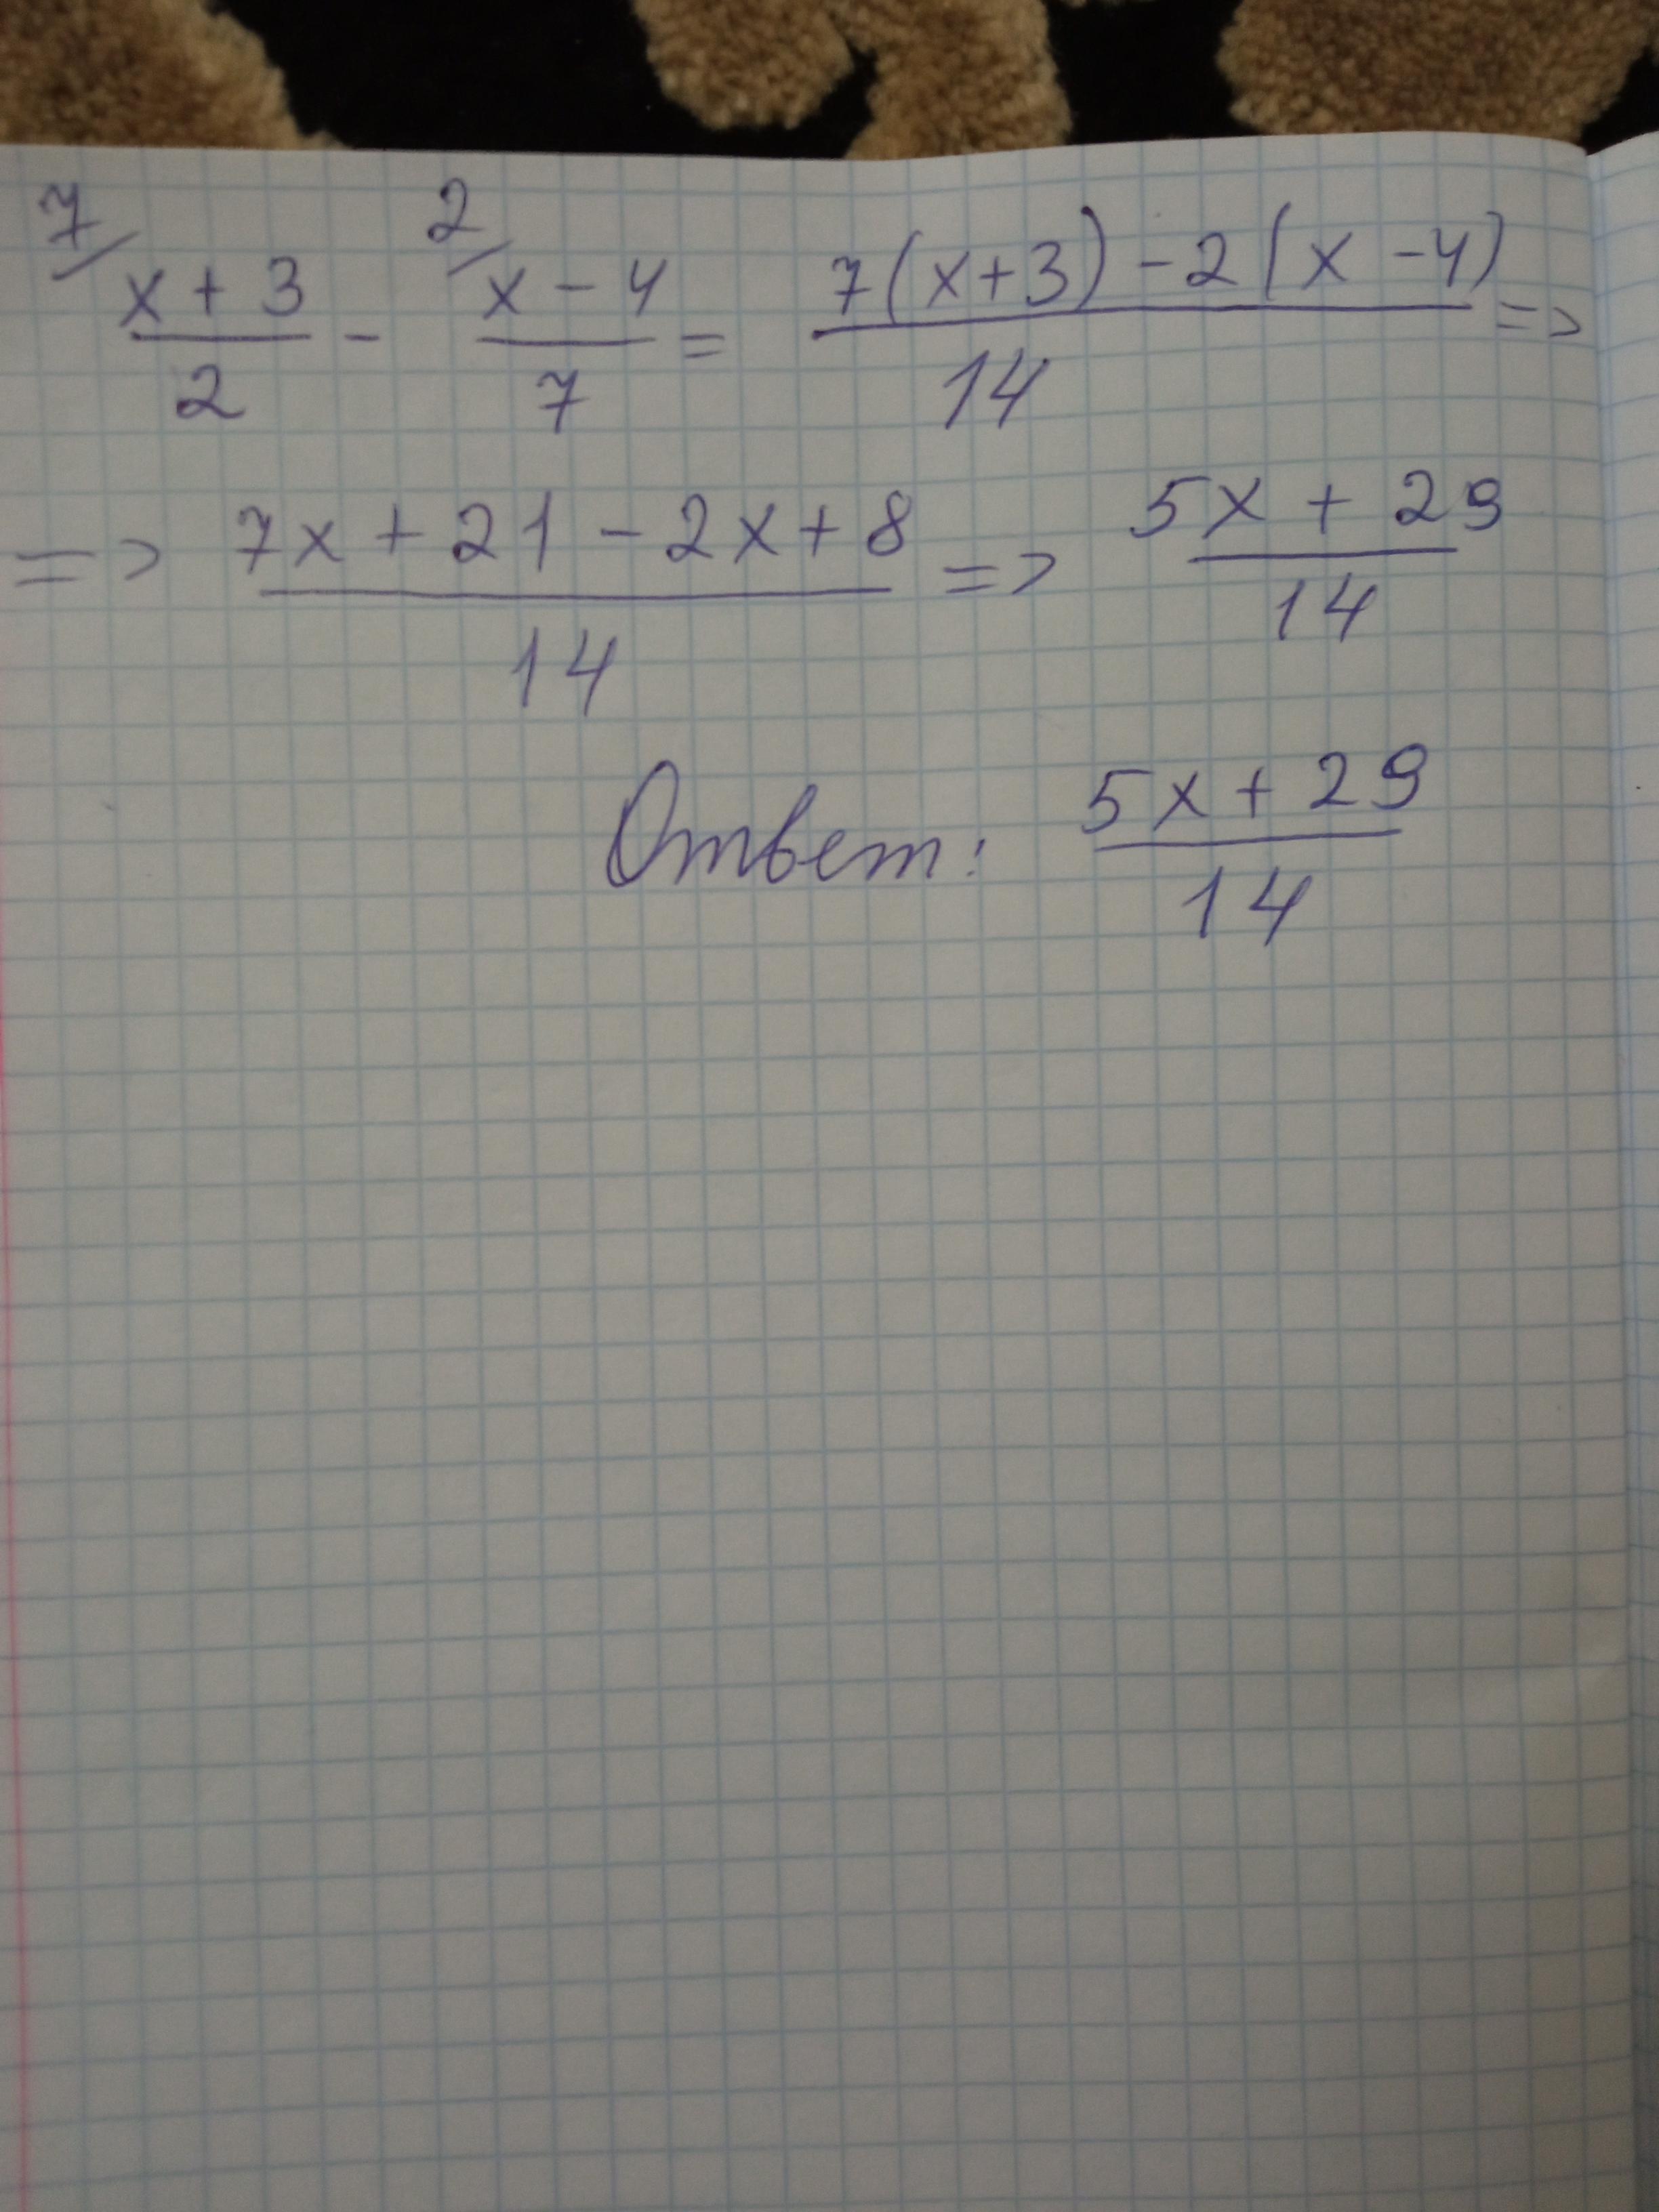 7/ (x + 3)/2 - 2/ (x - 4)/7 = (7(x+3) - 2(x - 4))/14 =>
=> (7x + 21 - 2x + 8)/14 => (5x + 29)/14
Ответ: (5x + 29)/14